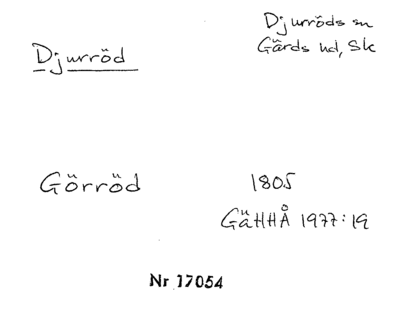 Djurröd
Djurröds sn
Gärds hd, Sk
Görröd
1805
GäHHÅ 1977:19
Nr 17054